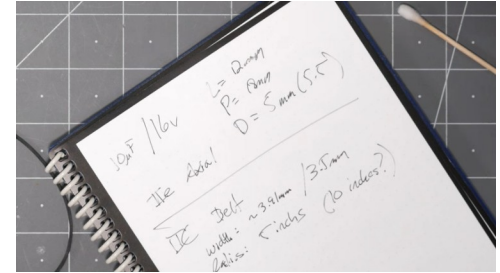 10µF / 16v
L= 12mm
P= 15mm
D= 5mm (5.5)
IIe Axial
IIc Belt
width: ~3.91mm / 3.5mm
Radius: 5 inches (10 inches?)